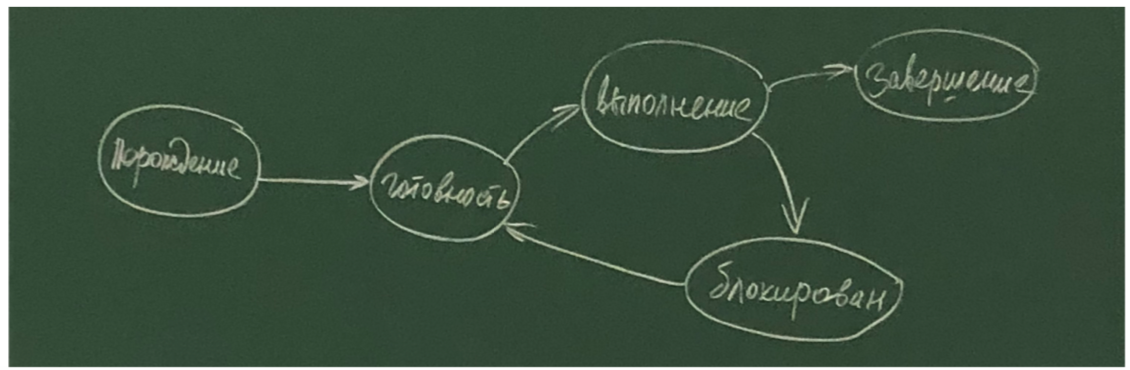 Порождение
готовность
выполнение
завершение
блокирован